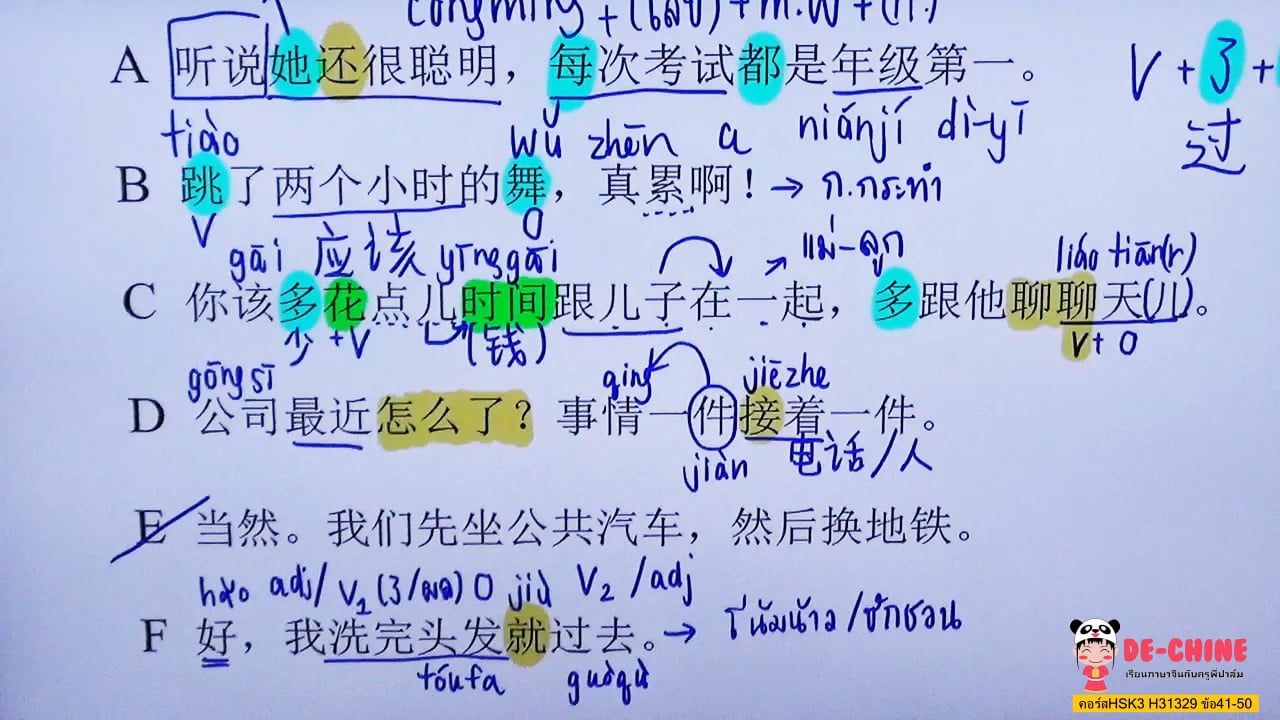 cōngmíng + (เลข) + m.w + (n.)
A 听说她还很聪明，每次考试都是年级第一。
V + 3 +
过
tiào wǔ zhēn a niánjí dì-yī
B 跳了两个小时的舞，真累啊！→ ก.กระทำ
V O
gāi 应该 yīnggāi แม่-ลูก liáo tiān(r)
C 你该多花点儿时间跟儿子在一起，多跟他聊聊天(儿)。
少 +V (钱) V + O
gōngsī qing jiēzhe
D 公司最近怎么了？事情一件接着一件。
jiàn 电话/人
E 当然。我们先坐公共汽车，然后换地铁。
hǎo adj/ V1 (3/ผล) O jiù V2 /adj
F 好，我洗完头发就过去。→ โน้มน้าว/ชักชวน
tóufa guòqù
DE-CHINE
เรียนภาษาจีนกับครูพี่ปาล์ม
คอร์สHSK3 H31329 ข้อ41-50